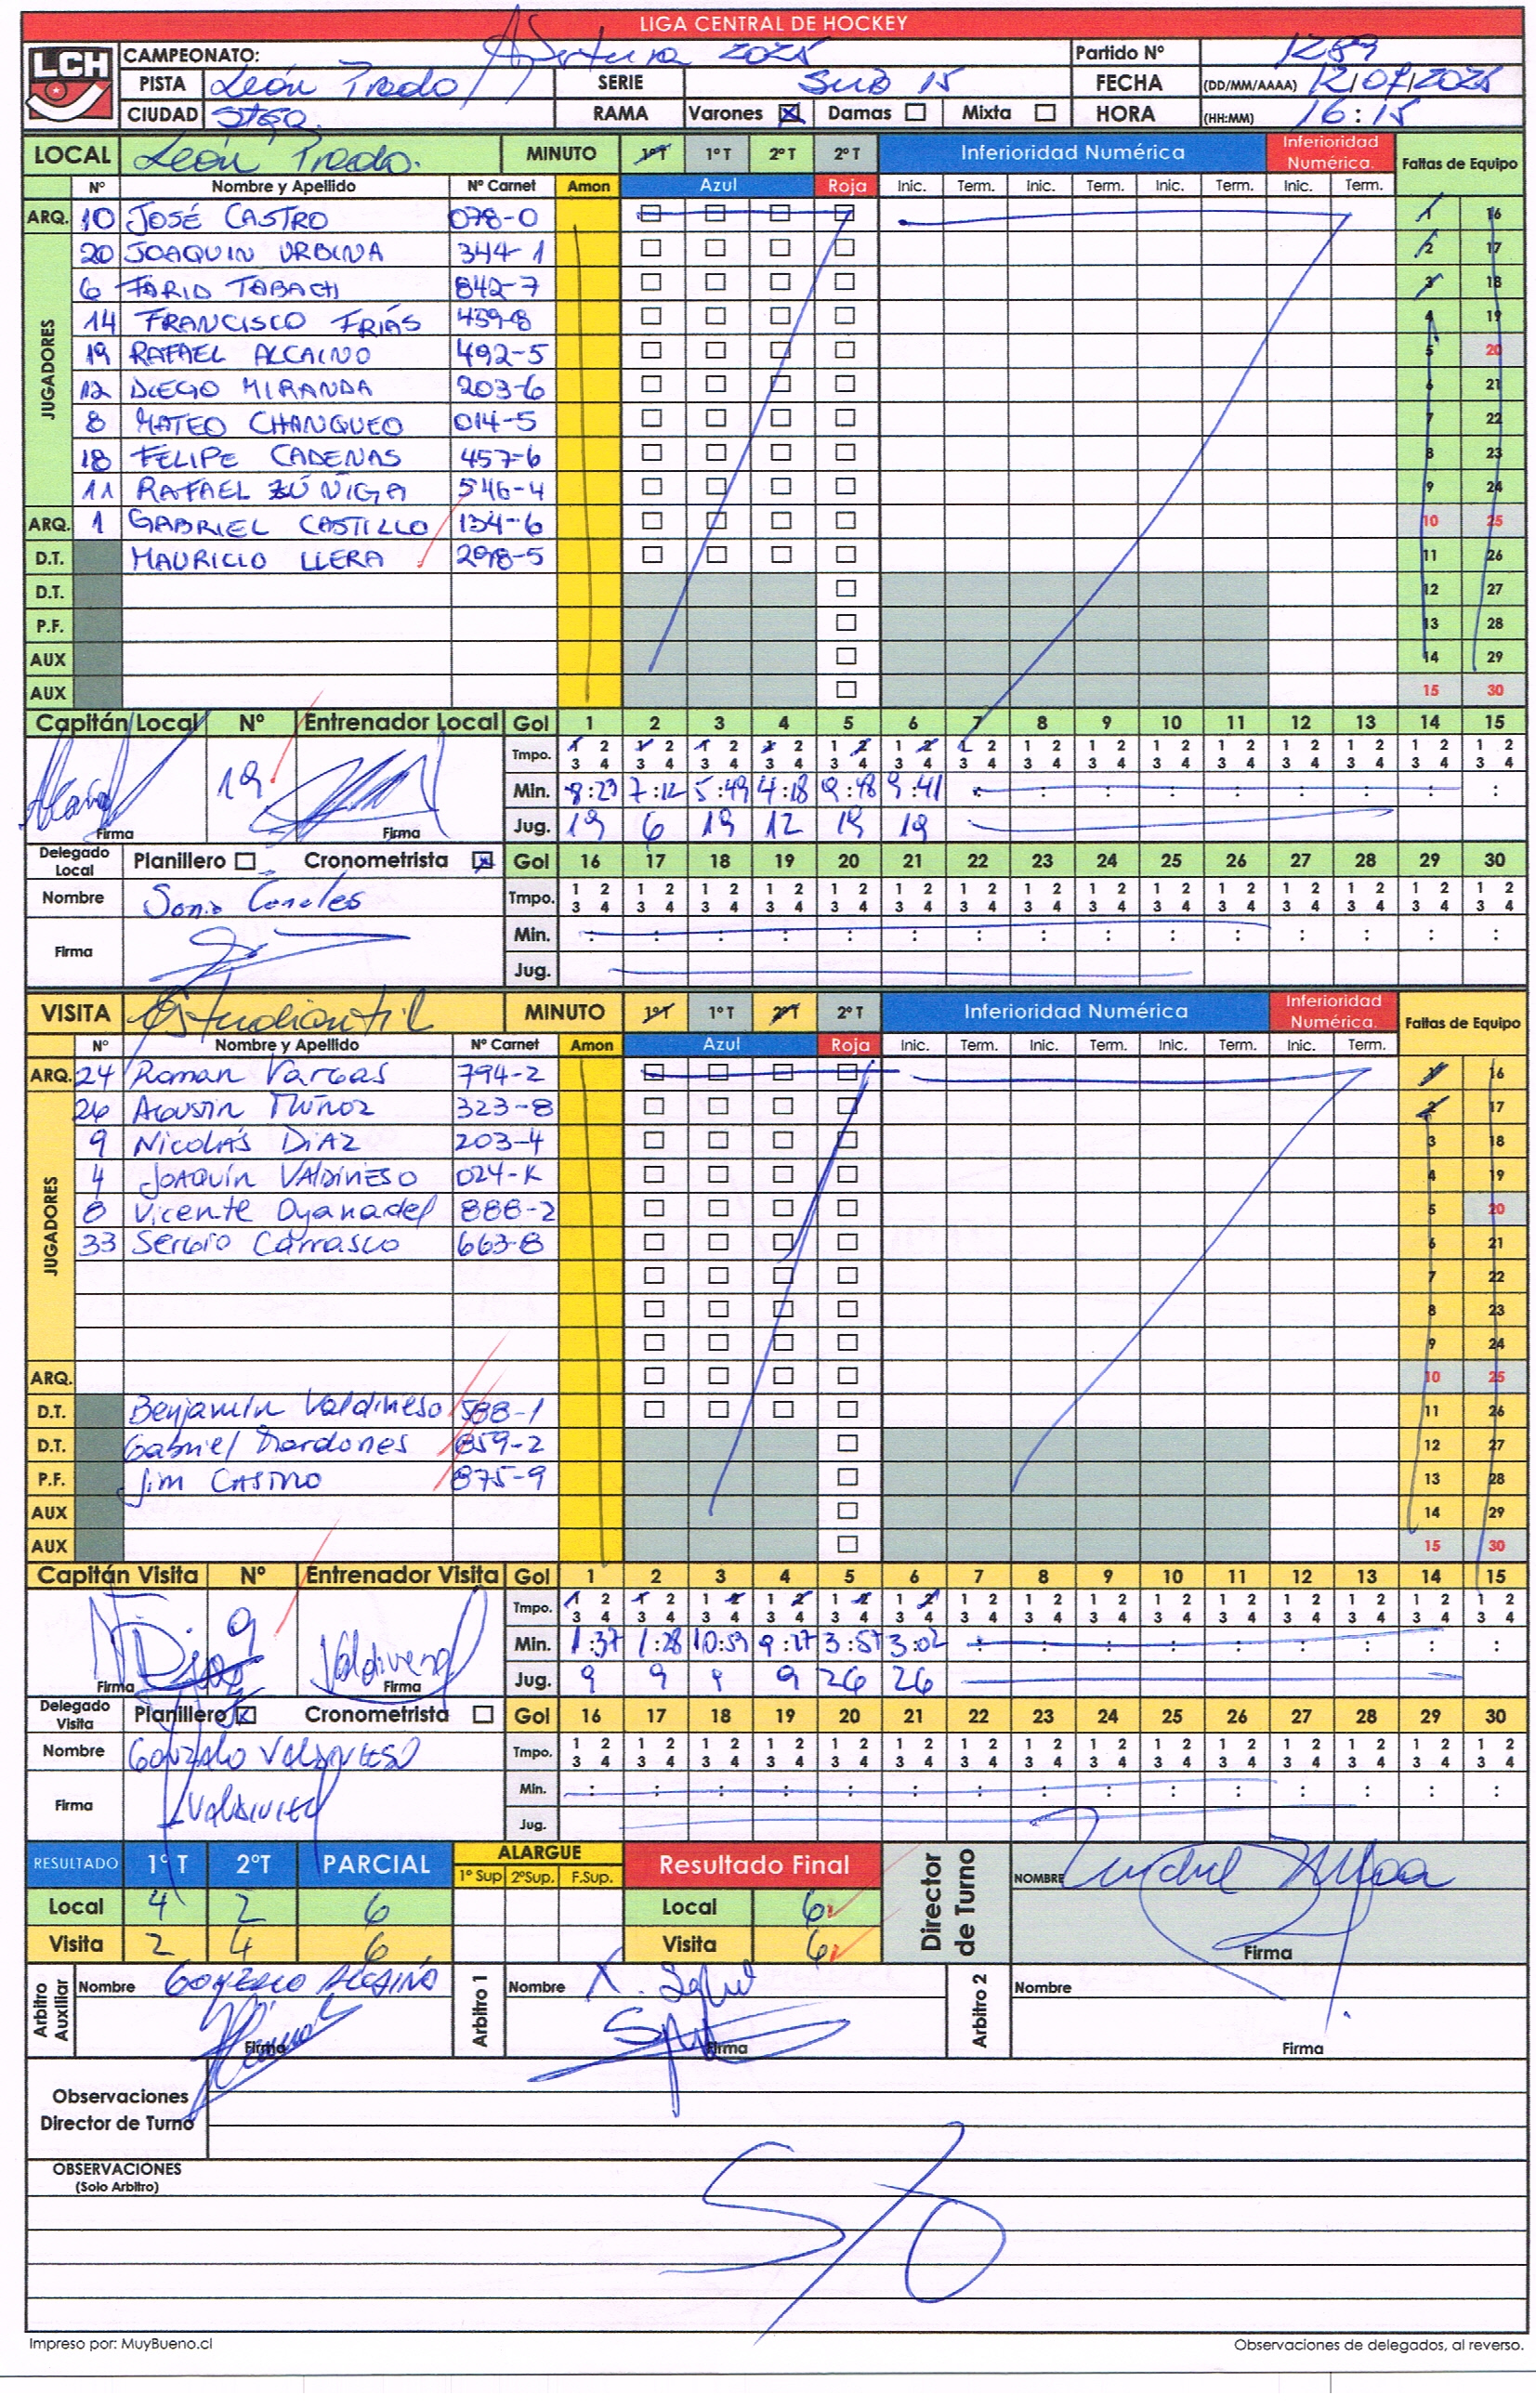 LIGA CENTRAL DE HOCKEY
LCH
CAMPEONATO: Apertura 2025 Partido Nº 1289
PISTA León Prado SERIE SUB 15 FECHA (DD/MM/AAAA) 12/07/2025
CIUDAD Stgo. RAMA Varones Damas Mixta HORA (HH:MM) 16:15
LOCAL León Prado. MINUTO 1ºT 1ºT 2ºT 2ºT Inferioridad Numérica Inferioridad Numérica. Faltas de Equipo
Nº Nombre y Apellido Nº Carnet Amon Azul Roja Inic. Term. Inic. Term. Inic. Term. Inic. Term.
ARQ. 10 JOSÉ CASTRO 078-0 1 16
JUGADORES
20 JOAQUIN URBINA 344-1 2 17
6 FARID TABACH 842-7 3 18
14 FRANCISCO FRIÁS 459-8 4 19
19 RAFAEL ALCAINO 492-5 5 20
12 DIEGO MIRANDA 203-6 6 21
8 MATEO CHANQUEO 014-5 7 22
18 FELIPE CADENAS 457-6 8 23
11 RAFAEL ZÚÑIGA 546-4 9 24
ARQ. 1 GABRIEL CASTILLO 134-6 10 25
D.T. MAURICIO LLERA 298-5 11 26
D.T. 12 27
P.F. 13 28
AUX 14 29
AUX 15 30
Capitán Local Nº Entrenador Local Gol 1 2 3 4 5 6 7 8 9 10 11 12 13 14 15
Tmpo. 1 2 1 2 1 2 1 2 1 2 1 2 1 2 1 2 1 2 1 2 1 2 1 2 1 2 1 2 1 2
3 4 3 4 3 4 3 4 3 4 3 4 3 4 3 4 3 4 3 4 3 4 3 4 3 4 3 4 3 4
19 Min. 8:23 7:12 5:49 4:18 9:48 9:41 : : : : : : : : :
Firma Firma Jug. 19 6 19 12 19 19
Delegado Local Planillero Cronometrista Gol 16 17 18 19 20 21 22 23 24 25 26 27 28 29 30
Nombre Tmpo. 1 2 1 2 1 2 1 2 1 2 1 2 1 2 1 2 1 2 1 2 1 2 1 2 1 2 1 2 1 2
3 4 3 4 3 4 3 4 3 4 3 4 3 4 3 4 3 4 3 4 3 4 3 4 3 4 3 4 3 4
Firma Min. : : : : : : : : : : : : : : :
Jug.
VISITA Estudiantil MINUTO 1ºT 1ºT 2ºT 2ºT Inferioridad Numérica Inferioridad Numérica. Faltas de Equipo
Nº Nombre y Apellido Nº Carnet Amon Azul Roja Inic. Term. Inic. Term. Inic. Term. Inic. Term.
ARQ. 24 Roman Vargas 794-2 1 16
JUGADORES
26 Agustin Muñoz 323-8 2 17
9 Nicolás Diaz 203-4 3 18
4 Joaquín Valdivieso 024-K 4 19
8 Vicente Oyanadel 888-2 5 20
33 Sergio Carrasco 663-8 6 21
7 22
8 23
9 24
ARQ. 10 25
D.T. Benjamín Valdivieso 588-1 11 26
D.T. Gabriel Mardones 859-2 12 27
P.F. Jim CASTRO 875-9 13 28
AUX 14 29
AUX 15 30
Capitán Visita Nº Entrenador Visita Gol 1 2 3 4 5 6 7 8 9 10 11 12 13 14 15
Tmpo. 1 2 1 2 1 2 1 2 1 2 1 2 1 2 1 2 1 2 1 2 1 2 1 2 1 2 1 2 1 2
3 4 3 4 3 4 3 4 3 4 3 4 3 4 3 4 3 4 3 4 3 4 3 4 3 4 3 4 3 4
9 Min. 1:37 1:28 10:59 9:27 3:57 3:02 : : : : : : : : :
Firma Firma Jug. 9 9 9 9 26 26
Delegado Visita Planillero Cronometrista Gol 16 17 18 19 20 21 22 23 24 25 26 27 28 29 30
Nombre GONZALO VALDIVIESO Tmpo. 1 2 1 2 1 2 1 2 1 2 1 2 1 2 1 2 1 2 1 2 1 2 1 2 1 2 1 2 1 2
3 4 3 4 3 4 3 4 3 4 3 4 3 4 3 4 3 4 3 4 3 4 3 4 3 4 3 4 3 4
Firma Min. : : : : : : : : : : : : : : :
Jug.
RESULTADO 1ºT 2ºT PARCIAL ALARGUE Resultado Final Director de Turno NOMBRE
1º Sup 2ºSup. F.Sup.
Local 4 2 6 Local 6
Visita 2 4 6 Visita 6 Firma
Arbitro Auxiliar Nombre GONZALO ALCAINO Arbitro 1 Nombre Arbitro 2 Nombre
Firma Firma Firma
Observaciones
Director de Turno
OBSERVACIONES
(Solo Arbitro)
S/O
Impreso por: MuyBueno.cl Observaciones de delegados, al reverso.